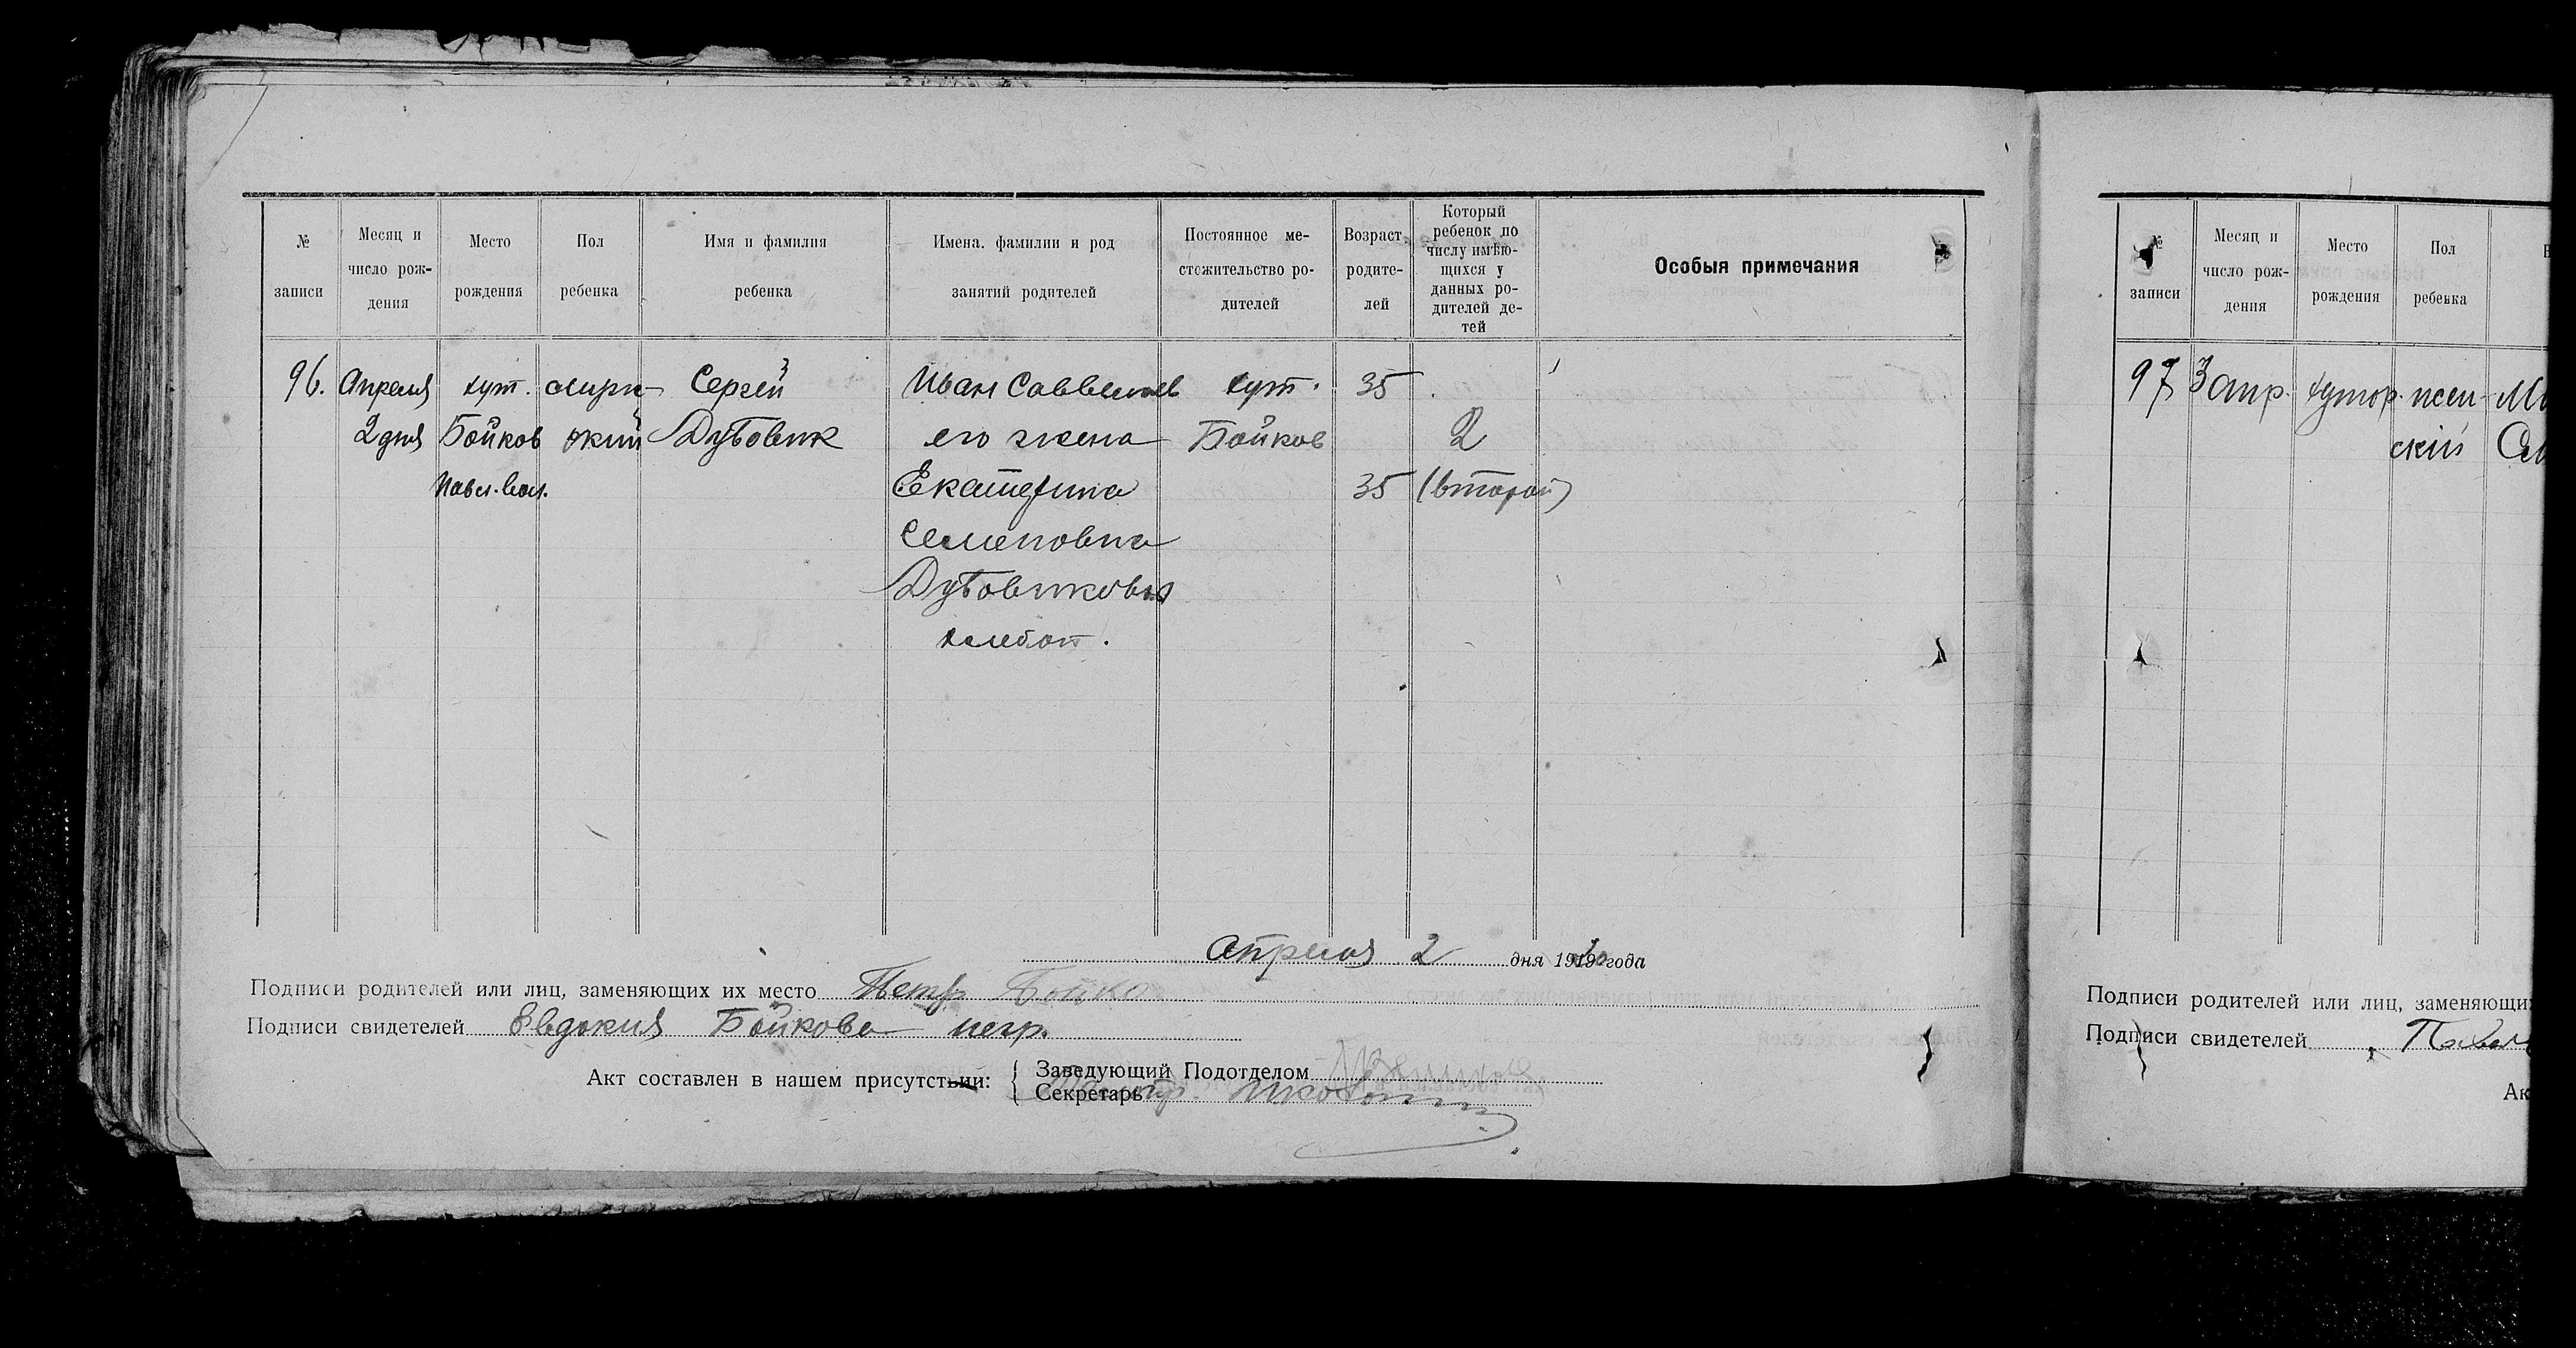 № записи
Месяц и число рождения
Место рождения
Пол ребенка
Имя и фамилия ребенка
Имена. фамилии и род занятий родителей
Постоянное местожительство родителей
Возраст родителей
Который ребенок по числу имѣющихся у данных родителей детей
Особыя примечания
96. Апреля хут. мужс- Сергей Иван Саввичев хут. 35
2 дня Бойков кий Дубовик его жена Бойков 2
Павл. вол. Екатерина 35 (второй)
Семеновна
Дубовиковы
хлебоп.
Апреля 2 дня 1920 года
Подписи родителей или лиц, заменяющих их место Петр Бойко
Подписи свидетелей Евдокия Бойкова негр.
Акт составлен в нашем присутствии:
Заведующий Подотделом
Секретарь
№ записи
Месяц и число рождения
Место рождения
Пол ребенка
97 3 апр. хутор. жен-
ский
Подписи родителей или лиц, заменяющи
Подписи свидетелей
Ак